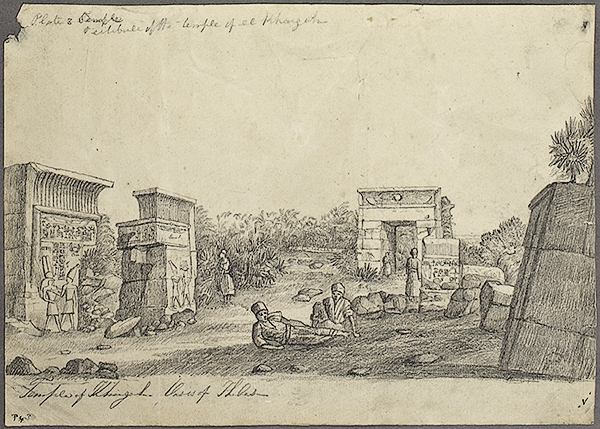 Plate 2 Temple
Vestibule of the temple of el Khargeh
Temple of Khargeh. Oasis of Thebes